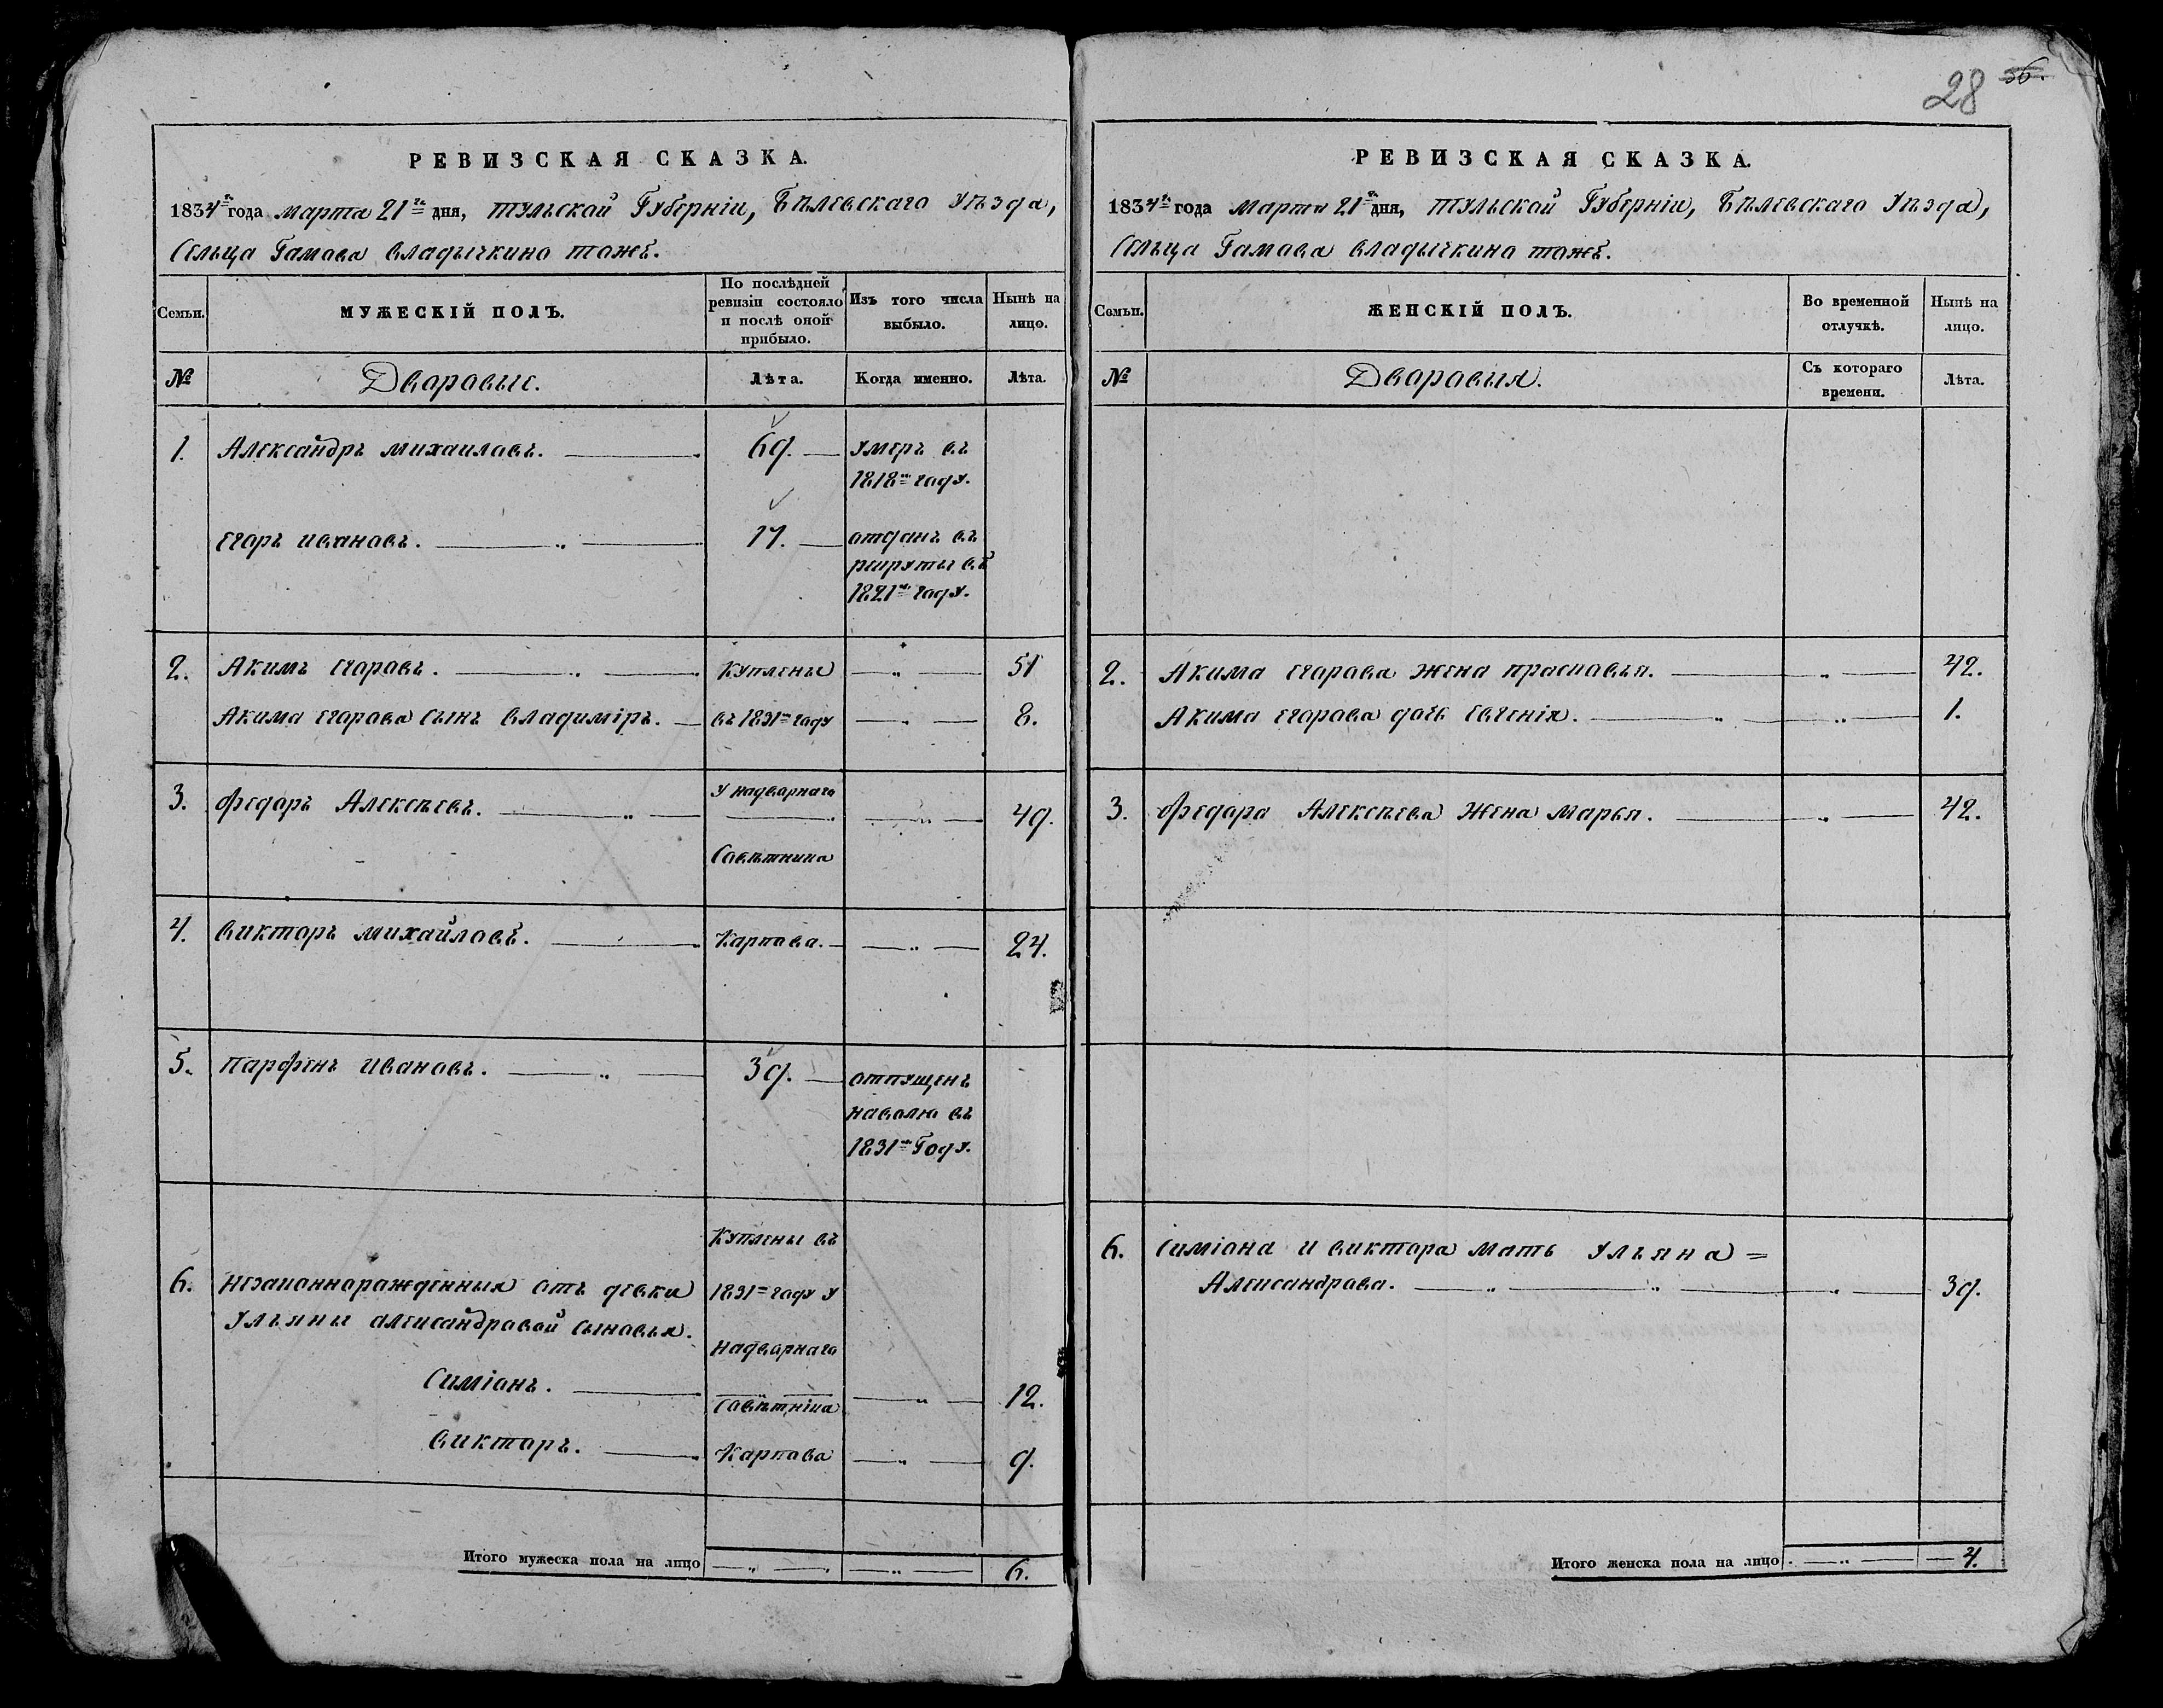 РЕВИЗСКАЯ СКАЗКА.
1834го года марта 21го дня, тульской Губерніи, Бѣлевскаго Уѣзда,
Сельца Гамова владычкино тожъ.
Семьи.
МУЖЕСКІЙ ПОЛЪ.
По послѣдней ревизіи состояло и послѣ оной прибыло.
Изъ того числа выбыло.
Нынѣ на лицо.
№
Дваравые.
Лѣта.
Когда именно.
Лѣта.
1. Александръ михаилавъ. 69. умеръ въ
1818м гаду.
егаръ ивановъ. 17. отданъ въ
рикруты въ
1821м гаду.
2. Акимъ егаравъ. Куплены 51
Акима егарава сынъ владиміръ. въ 1831м гаду 8.
3. федаръ Алексѣевъ. у надворнаго 49.
Савѣтника
4. викторъ михайлавъ. Карпава. 24.
5. парфенъ ивановъ. 39. отпущенъ
наволю въ
1831м Году.
Куплены въ
6. незаконнаражденныя отъ девки 1831м гаду у
ульяны александравой сыновья.
надворнаго
Симіонъ. 12.
Савѣтніка
викторъ. Карпава 9.
Итого мужеска пола на лицо 6.
28 56.
РЕВИЗСКАЯ СКАЗКА.
1834го года марта 21го дня, тульской Губерніи, Бѣлевскаго Уѣзда,
Сельца Гамова владычкино тожъ.
Семьи.
ЖЕНСКІЙ ПОЛЪ.
Во временной отлучкѣ.
Нынѣ на лицо.
№
Дваравыя.
Съ котораго времени.
Лѣта.
2. Акима егарава жена прасковья. 42.
Акима егарова дочь евгенія. 1.
3. федара Алексѣева жена марья. 42.
6. Симіона и виктора мать ульяна =
Александрава. 39.
Итого женска пола на лицо 4.